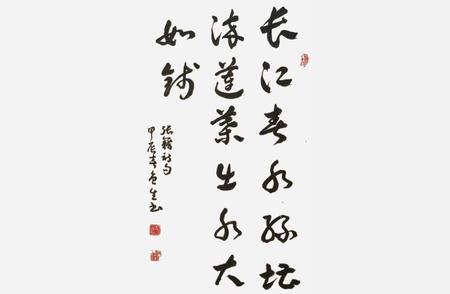 长江春水绿堪
染蓮葉出水大
如钱
张籍诗句
甲辰春生书